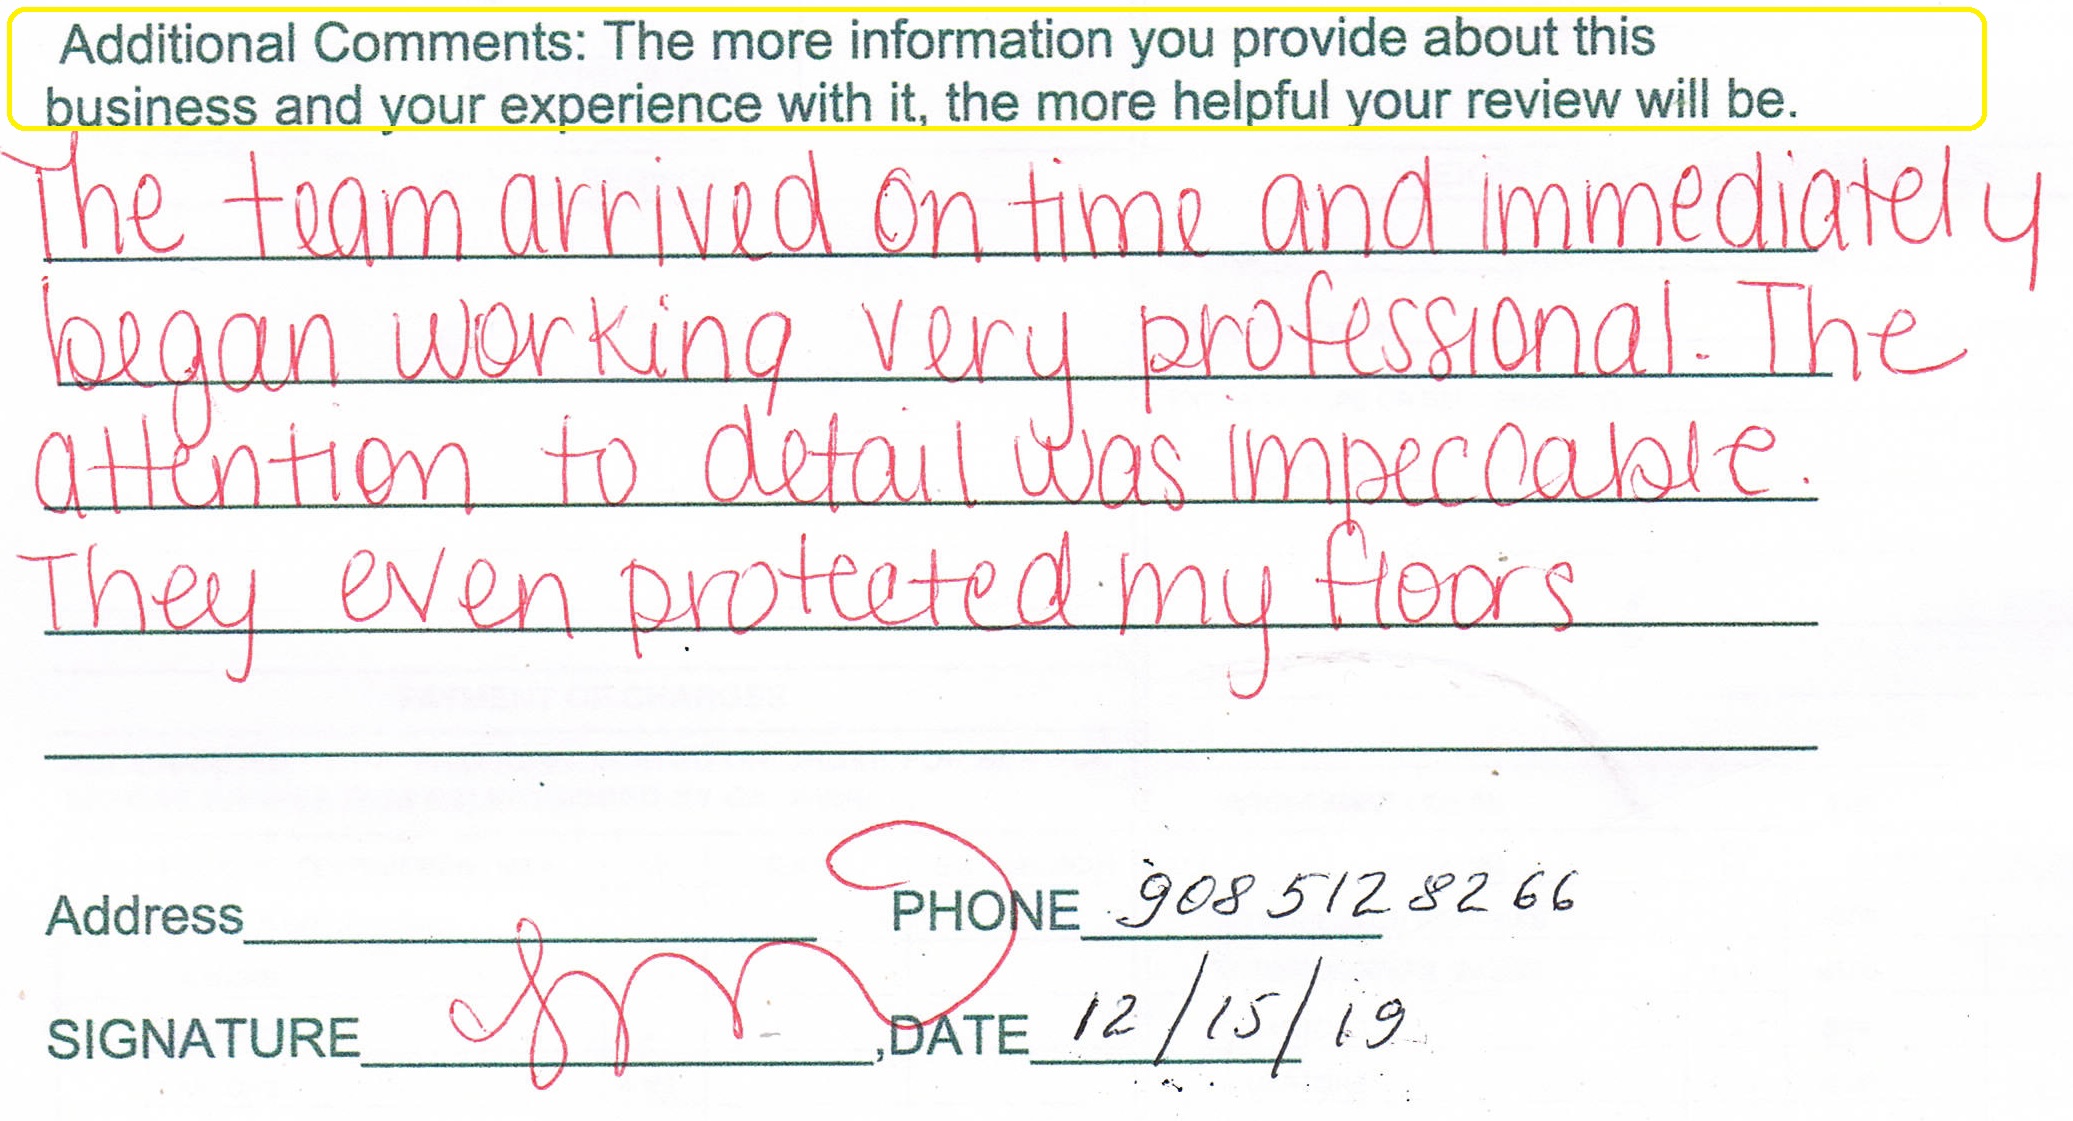 Additional Comments: The more information you provide about this
business and your experience with it, the more helpful your review will be.
The team arrived on time and immediately
began working very professional. The
attention to detail was impeccable.
They even protected my floors
Address PHONE 908 512 8266
SIGNATURE ,DATE 12/15/19